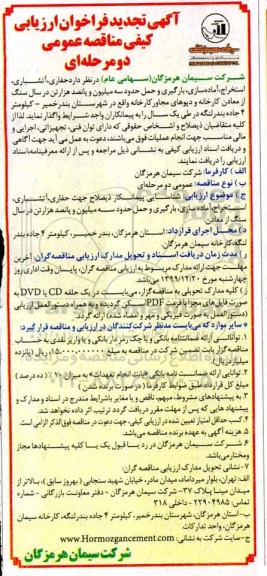 آگهی تجدید فراخوان ارزیابی
کیفی مناقصه عمومی
دو مرحله‌ای
شرکت سیمان هرمزگان (سهامی عام) در نظر دارد حفاری، آتشباری،
استخراج، آماده‌سازی، بارگیری و حمل حدود سه میلیون و پانصد هزار تن در سال سنگ
از معادن کارخانه و دپوهای مجاور کارخانه واقع در شهرستان بندر خمیر - کیلومتر
۴ جاده بندرلنگه در طی یک سال را به پیمانکاران واجد شرایط واگذار نماید. لذا از
کلیه متقاضیان ذیصلاح و اشخاص حقوقی که دارای توان فنی، تجهیزاتی، اجرایی و
مالی مناسب جهت انجام عملیات فوق می‌باشند، دعوت به عمل می آید جهت آگاهی
و دریافت اسناد ارزیابی کیفی به نشانی ذیل مراجعه و پس از ارائه معرفینامه اسناد
ارزیابی را دریافت نمایند.
الف) کارفرما: شرکت سیمان هرمزگان
ب) نوع مناقصه: عمومی دو مرحله‌ای
ج) موضوع ارزیابی: شناسایی پیمانکار ذیصلاح جهت حفاری، آتشباری،
استخراج، آماده سازی، بارگیری و حمل حدود سه میلیون و پانصد هزار تن در سال
سنگ از معادن
د) محل اجرای قرارداد: استان هرمزگان، بندر خمیر، کیلومتر ۴ جاده بندر
لنگه، کارخانه سیمان هرمزگان.
ر) مدت زمان دریافت اسناد و تحویل مدارک ارزیابی مناقصه‌گران: آخرین
مهلت جهت ارائه مدارک مربوط به ارزیابی مناقصه گران، پایان وقت اداری روز
چهارشنبه مورخ ۱۳۹۹/۱۲/۲۰ می‌باشد.
ز) کلیه مدارک تحویلی به مناقصه گزار، می‌بایست در یک حلقه CD یا DVD به
صورت فایل های مجزا با فرمت PDF اسکن گردیده و به همراه دستورالعمل ارزیابی
(دستورالعمل به صورت فیزیکی و مهر و امضاء شده) ارائه گردد.
* سایر موارد که می‌بایست مدنظر شرکت‌کنندگان در ارزیابی و مناقصه قرار گیرد:
۱. توانائی ارائه ضمانتنامه بانکی و یا چک رمزدار بانکی و یا واریز نقدی به حساب
مناقصه گزار بابت تضمین شرکت در مناقصه به مبلغ ۱۵.۰۰۰.۰۰۰.۰۰۰ ریال (پانزده
میلیارد ریال).
۲. توانایی ارائه ضمانت نامه بانکی بابت انجام تعهدات به میزان ۱۰٪ (ده درصد)
مبلغ کل قرارداد طبق ضوابط کارفرما (در صورت برنده شدن)
۳. به پیشنهادهای مشروط، مبهم، ناقص و یا مغایر با شرایط مندرج در اسناد و مدارک و
پیشنهاد هایی که پس از مهلت مقرر دریافت گردد ترتیب اثر داده نخواهد شد.
۴. کسب حداقل امتیاز تعیین شده در ارزیابی کیفی، جهت دعوت در مناقصه فوق الذکر الزامی است.
۵. هزینه آگهی به عهده برنده مناقصه می باشد.
۶. شرکت سیمان هرمزگان در رد یا قبول یک یا کلیه پیشنهادها مجاز
و مختار می‌باشد.
۷- نشانی تحویل مدارک ارزیابی مناقصه گران:
الف- تهران، بلوار میرداماد، میدان مادر، خیابان شهید سنجابی (بهروز سابق)، بالاتر از
میدان مینا پلاک ۳۷ - شرکت سیمان هرمزگان - دفتر معاونت بازرگانی - شماره
تماس: ۲۲۹۰۴۹۸۵ - داخلی ۳۱۸
ب- استان هرمزگان، شهرستان بندر خمیر، کیلومتر ۴ جاده بندرلنگه، کارخانه سیمان
هرمزگان، واحد تدارکات
ج- سایت شرکت به نشانی: www.Hormozgancement.com
شرکت سیمان هرمزگان